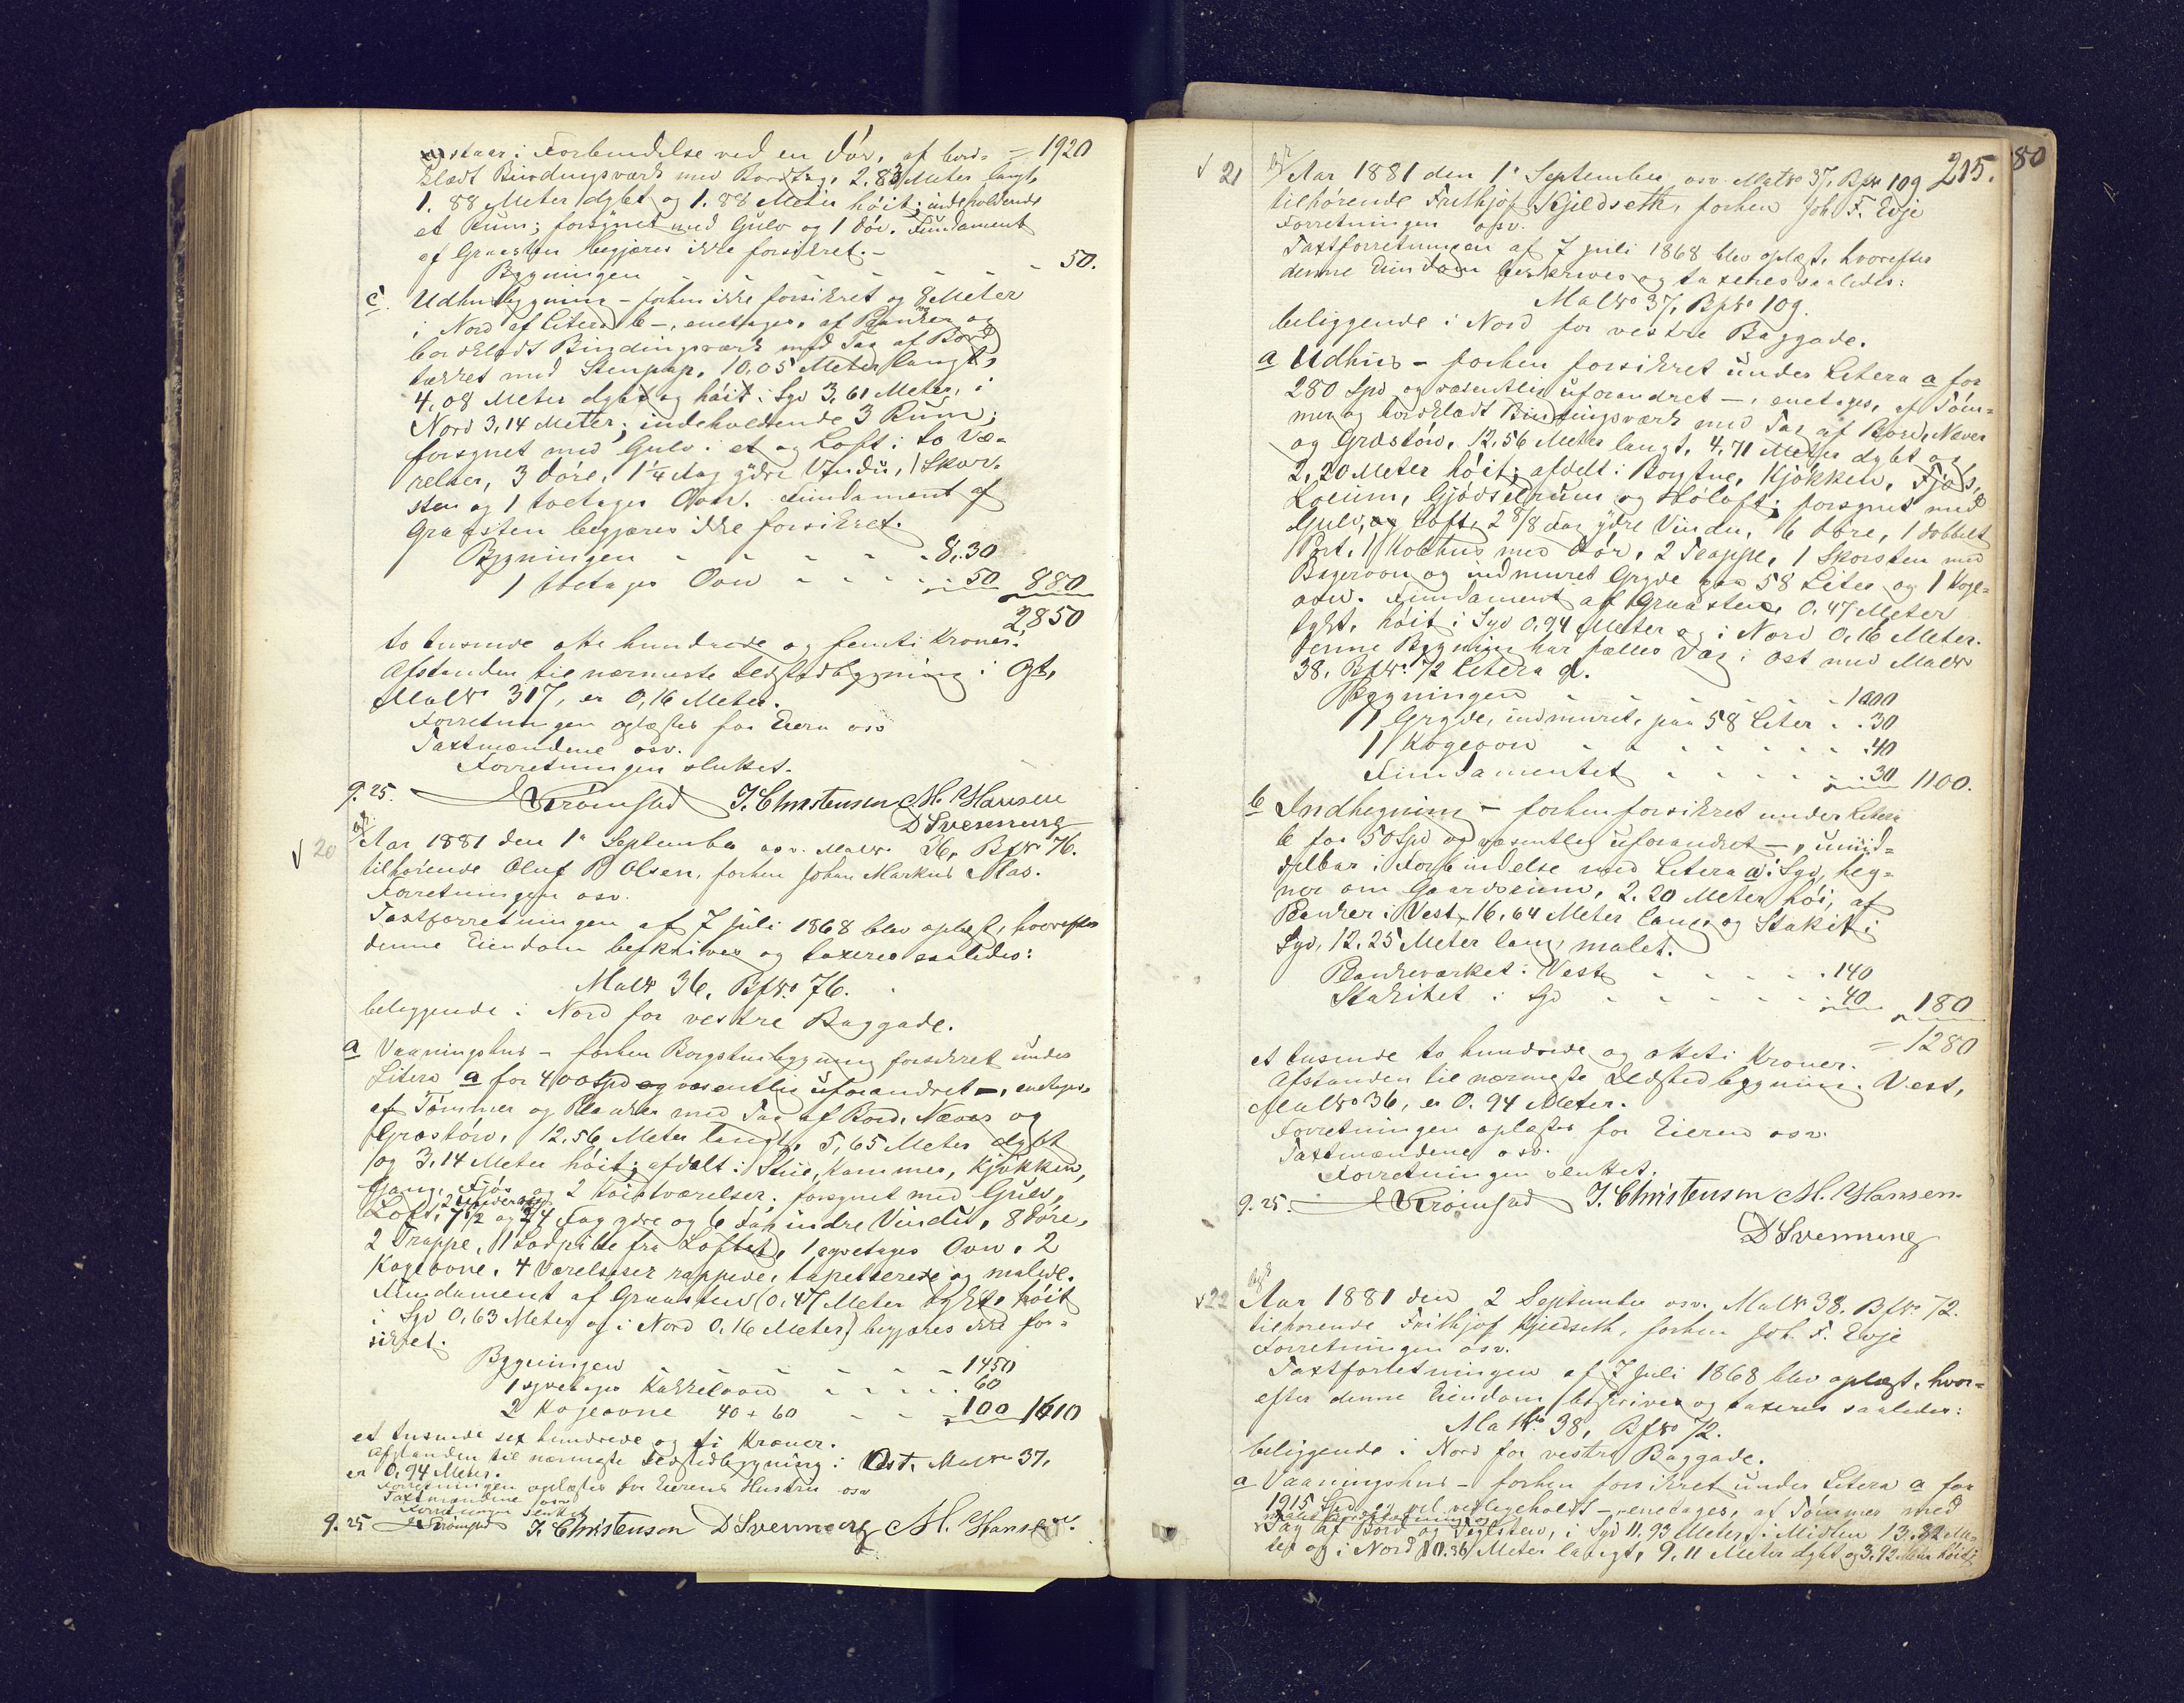 a) staar i Forbindelse ved en Dör, af bord- = 1920
klædt Bindingsværk med Bordtag, 2.83 Meter langt,
1.88 Meter dybt og 1.88 Meter höit; indeholdende
et Rum; forsynet med Gulv og 1 Dör. Fundament
af Graasten begjæres ikke forsikret.-
Bygningen - - - - - - 50.
c. Udhusbygning - forhen ikke forsikret og 8 Meter
i Nord af Litera b -, enetages, af Planker og
bordklædt Bindingsværk med Tag af Bord
tækket med Stenpap, 10,05 Meter langt,
4,08 Meter dybt og höit i Syd 3,61 Meter, i
Nord 3,14 Meter; indeholdende 3 Rum;
forsynet med Gulv i et og Loft i to Væ-
relser, 3 Döre, 1 1/4 Fag ydre Vindu, 1 Skor-
sten og 1 toetages Ovn. Fundament af
Graasten begjæres ikke forsikret.
Bygningen - - - - - 830
1 toetages Ovn - - - - 50 880
2850
to tusinde otte hundrede og femti Kroner.
Afstanden til nærmeste Ildstedbygning i Öst,
Matr 317, er 0,16 Meter.
Forretningen oplæstes for Eieren osv
Taxtmændene osv.
Forretningen sluttet.
9.25. Kromstad J. Christensen M. Hansen
D Svenning
20 Aar 1881 den 1' September osv. Matr. 36, Bf No 76.
tilhörende Oluf B Olsen, forhen Johan Markus Aas.
Forretningen osv.
Taxtforretningen af 7 Juli 1868 blev oplæst, hvorefter
denne Eiendom beskrives og taxeres saaledes:
Matr 36, Bf No 76.
beliggende i Nord for vestre Baggade.
a Vaaningshus - forhen Borgstuebygning forsikret under
Litera a for 400 Spd og væsentlig uforandret -, enetages,
af Tömmer og Planker med Tag af Bord, Næver og
Græstörv, 12,56 Meter langt, 5,65 Meter dybt
og 3,14 Meter höit; afdelt i Stue, Kammer, Kjökken,
Gang, Fjös og 2 Kvistværelser; forsynet med Gulv,
Loft, 7 1/2 og 2/4 Fag ydre og 6 Fag indre Vindu, 8 Döre,
2 Trappe, 1 Lodpibe fra Loftet, 1 syvetages Ovn, 2
Kogeovne. 4 Værelser rappede, tapetserede og malede.
Fundament af Graasten (0,47 Meter tykt, höit
i Syd 0,63 Meter og i Nord 0,16 Meter) begjæres ikke for-
sikret.
Bygningen - - - - - - 1450
1 syvetages Kakkelovn - - - - 60
2 Kogeovne 40 + 60 - - 100 1610
et tusinde sex hundrede og ti Kroner.
Afstanden til nærmeste Ildstedbygning i Öst, Matr 37,
er 0,94 Meter.
Forretningen oplæstes for Eierens Hustru osv
Taxtmændene osv
Forretningen sluttet
9.25 Kromstad J. Christenson D Svenning M. Hansen.
80
215.
21 Aar 1881 den 1' September osv. Matr No 37, Bf No 109
tilhörende Frithjof Kjeldseth, forhen Joh. F. Evje
Forretningen osv.
Taxtforretningen af 7 Juli 1868 blev oplæst, hvorefter
denne Eiendom beskrives og taxeres saaledes:
Mat No 37, Bf No 109.
beliggende i Nord for vestre Baggade.
a Udhus - forhen forsikret under Litera a for
280 Spd og væsentlig uforandret -, enetages, af Töm-
mer og bordklædt Bindingsværk med Tag af Bord, Næver
og Græstörv, 12,56 Meter langt, 4,71 Meter dybt og
2,20 Meter höit; afdelt i Borgstue, Kjökken, Fjös,
Lorum, Gjödselrum og Höloft; forsynet med
Gulv, og Loft, 2 5/8 Fag ydre Vindu, 6 Döre, 1 dobbelt
Port, 1 Kothus med Dör, 2 Trappe, 1 Skorsten med
Bagerovn og indmuret Gryde paa 58 Liter og 1 Koge-
ovn. Fundament af Graasten, 0,47 Meter
tykt, höit i Syd 0,94 Meter og i Nord 0,16 Meter.
Denne Bygning har fælles Væg i Öst med Matr
38, Bf No. 72 Litera d.
Bygningen - - - - - 1000
1 Gryde, indmuret, paa 58 Liter - . 30
1 Kogeovn - - - - - - . 40
Fundamentet - - - - - . 30 1100.
b Indhegning - forhen forsikret under Litera
b for 50 Spd og væsentlig uforandret -, umid-
delbar i Forbindelse med Litera a i Syd, heg-
ner om Gaardsrum, 2.20 Meter höi, af
Planker i Vest, 16,64 Meter lang, og Stakit i
Syd, 12,25 Meter lang, malet.
Plankeværket i Vest - - - - - . 140
Stakitet i Syd - - - - - . 40 180
= 1280
et tusinde to hundrede og otteti Kroner.
Afstanden til nærmeste Ildstedbygning i Vest,
Mat No 36, er 0.94 Meter.
Forretningen oplæstes for Eieren osv.
Taxtmændene osv.
Forretningen sluttet.
9.25. Kromstad J. Christenson M. Hansen.
D Svenning
22 Aar 1881 den 2 September osv. Matr 38. Bf No 72.
tilhörende Frithjof Kjeldseth, forhen Joh. F. Evje
Forretningen osv.
Taxtforretningen af 7 Juli 1868 blev oplæst, hvor-
efter denne Eiendom beskrives og taxeres saaledes:
Mat No. 38, Bf No 72.
beliggende i Nord for vestre Baggade.
a Vaaningshus - forhen forsikret under Litera a for
1915 Spd og vel vedligeholdt -, enetages, af Tömmer med
Tag af Bord og Teglsten, i Syd 11.93 Meter, i Midten 13.82 Me-
ter og i Nord 10.36 Meter langt, 9.11 Meter dybt og 3,92 Meter höit;